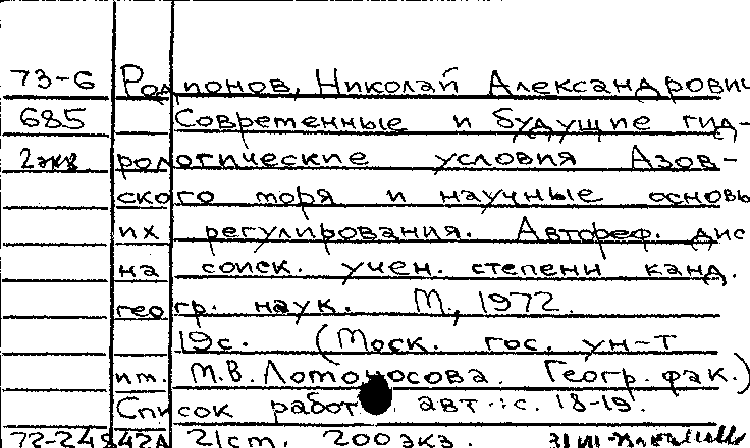 73-6 Родионов, Николай Александрович
685 Современные и будущие гид-
2 экз рологические условия Азов-
ского моря и научные основы
их регулирования. Автореф. дис
на соиск. учен. степени канд.
геогр. наук. М., 1972.
19с. (Моск. гос. ун-т
им. М.В. Ломоносова. Геогр. фак.)
Список работ авт.: с. 18-19.
72-24842А 21 ст. 200 экз.